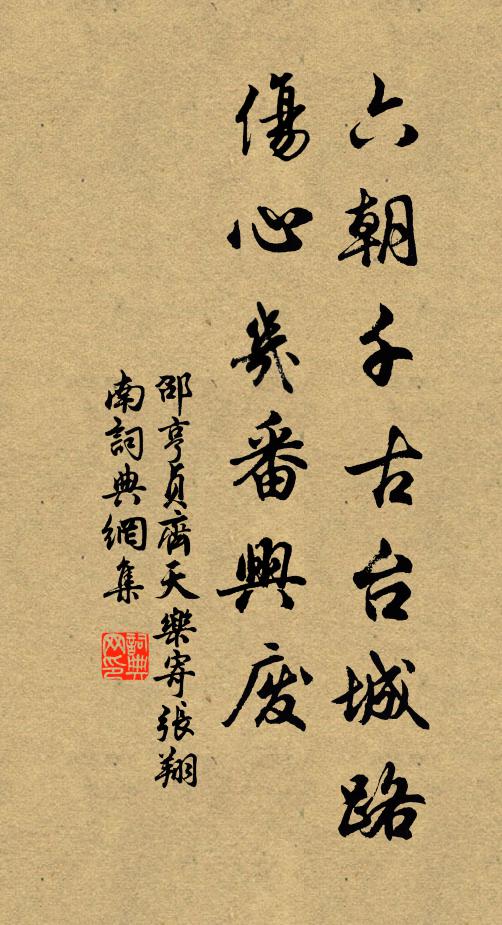 六朝千古台城路
傷心幾番興废
邵亨貞齊天樂寄張翔
南詞典網集
詞典网印